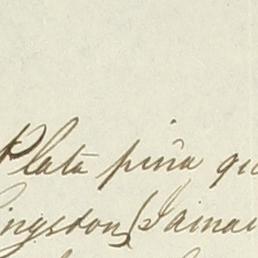 Plata piña qu
ingsdon, (Jamai